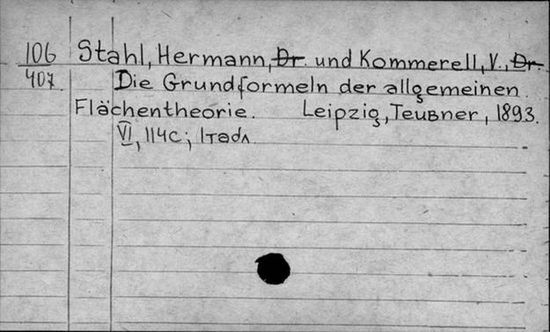 106 Stahl, Hermann, Dr. und Kommerell, V., Dr.
407. Die Grundformeln der allgemeinen
Flächentheorie. Leipzig, Teubner, 1893.
VI, 114c; 1табл